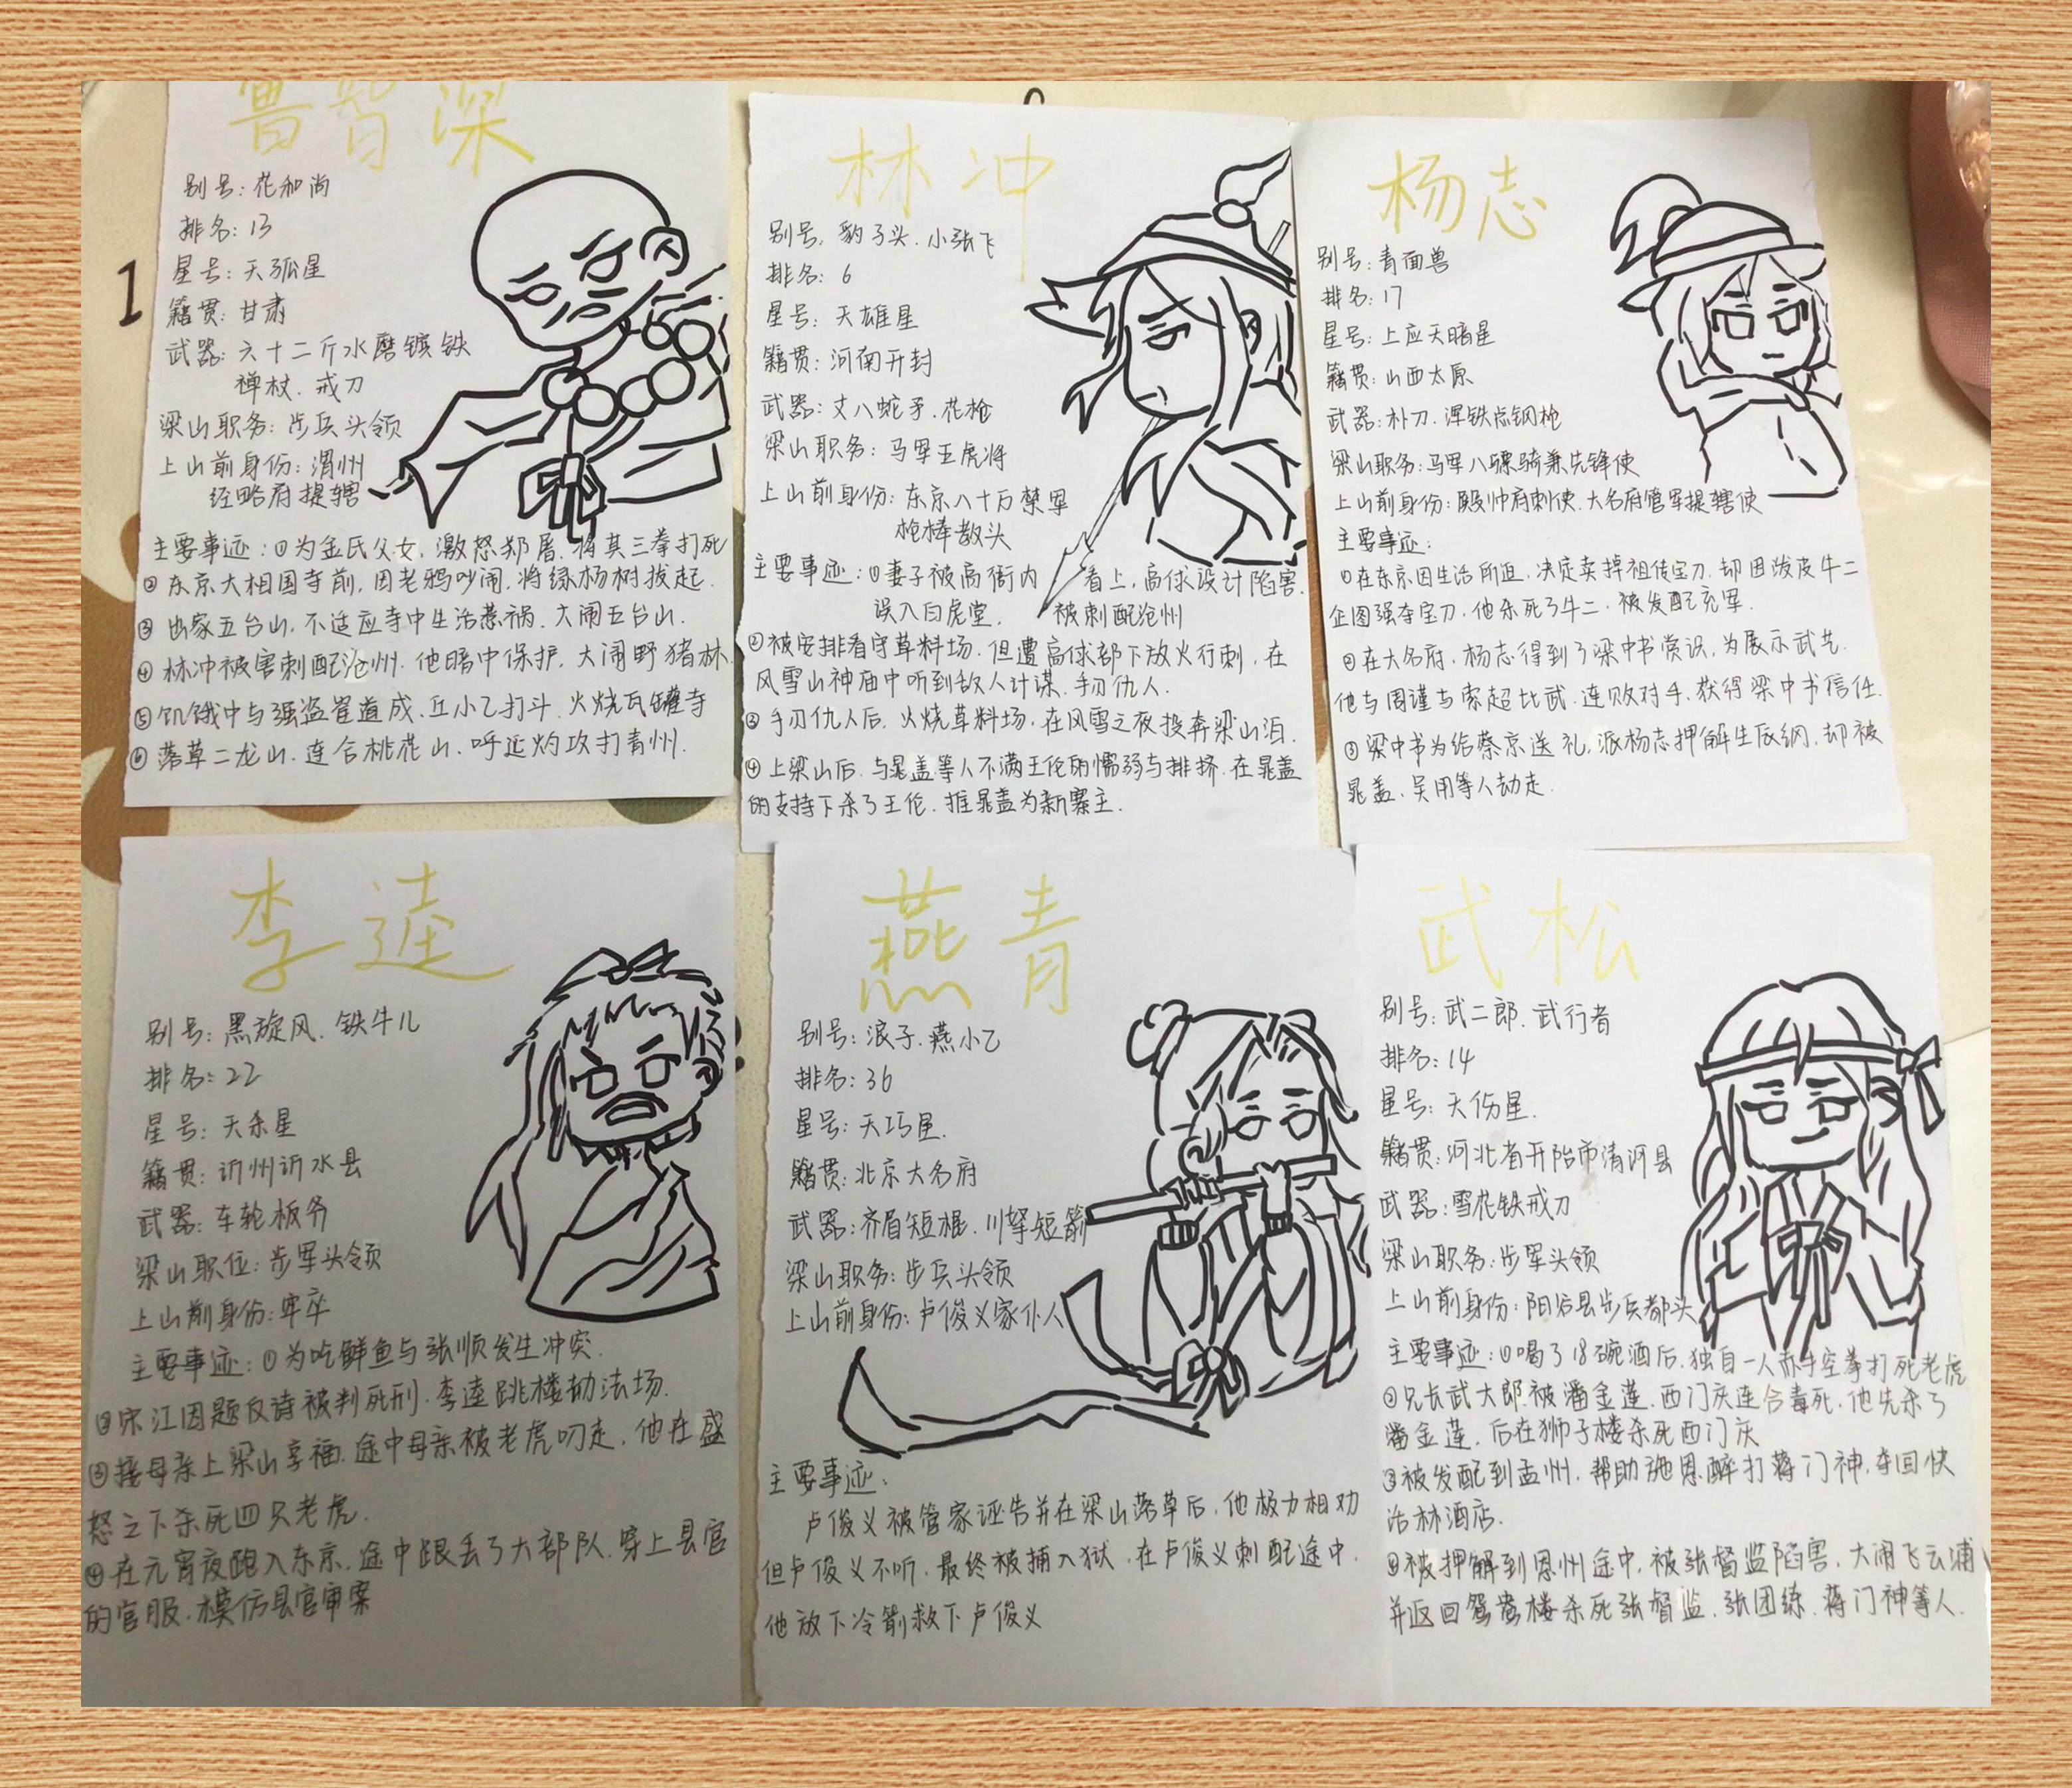 鲁智深
别号：花和尚
排名：13
星号：天孤星
籍贯：甘肃
武器：六十二斤水磨镔铁
禅杖、戒刀
梁山职务：步兵头领
上山前身份：渭州
经略府提辖
主要事迹：①为金氏父女，激怒郑屠，将其三拳打死
②东京大相国寺前，因老鸦吵闹，将绿杨树拔起．
③出家五台山，不适应寺中生活惹祸、大闹五台山．
④林冲被害刺配沧州．他暗中保护，大闹野猪林．
⑤饥饿中与强盗崔道成、丘小乙打斗．火烧瓦罐寺
⑥落草二龙山．连合桃花山、呼延灼攻打青州．
1
林冲
别号：豹子头、小张飞
排名：6
星号：天雄星
籍贯：河南开封
武器：丈八蛇矛、花枪
梁山职务：马军五虎将
上山前身份：东京八十万禁军
枪棒教头
主要事迹：①妻子被高衙内看上，高俅设计陷害．
误入白虎堂．被刺配沧州
②被安排看守草料场．但遭高俅部下放火行刺，在
风雪山神庙中听到敌人计谋．手刃仇人．
③手刃仇人后．火烧草料场，在风雪之夜投奔梁山泊．
④上梁山后．与晁盖等人不满王伦的懦弱与排挤．在晁盖
的支持下杀了王伦．推晁盖为新寨主．
杨志
别号：青面兽
排名：17
星号：上应天暗星
籍贯：山西太原
武器：朴刀、浑铁点钢枪
梁山职务：马军八骠骑兼先锋使
上山前身份：殿帅府制使、大名府管军提辖使
主要事迹：
①在东京因生活所迫．决定卖掉祖传宝刀．却因泼皮牛二
企图强夺宝刀，他杀死了牛二．被发配充军．
②在大名府，杨志得到了梁中书赏识，为展示武艺．
他与周谨与索超比武．连败对手，获得梁中书信任．
③梁中书为给蔡京送礼，派杨志押解生辰纲，却被
晁盖、吴用等人劫走．
李逵
别号：黑旋风、铁牛儿
排名：22
星号：天杀星
籍贯：沂州沂水县
武器：车轮板斧
梁山职位：步军头领
上山前身份：牢卒
主要事迹：①为吃鲜鱼与张顺发生冲突．
②宋江因题反诗被判死刑．李逵跳楼劫法场．
③接母亲上梁山享福．途中母亲被老虎叼走．他在盛
怒之下杀死四只老虎．
④在元宵夜跑入东京．途中跟丢了大部队．穿上县官
的官服．模仿县官审案
燕青
别号：浪子、燕小乙
排名：36
星号：天巧星
籍贯：北京大名府
武器：齐眉短棍、川弩短箭
梁山职务：步兵头领
上山前身份：卢俊义家仆人
主要事迹：
卢俊义被管家诬告并在梁山落草后，他极力相劝
但卢俊义不听．最终被捕入狱．在卢俊义刺配途中．
他放下冷箭救下卢俊义
武松
别号：武二郎、武行者
排名：14
星号：天伤星．
籍贯：河北省邢台市清河县
武器：雪花铁戒刀
梁山职务：步军头领
上山前身份：阳谷县步兵都头
主要事迹：①喝了18碗酒后．独自一人赤手空拳打死老虎
②兄长武大郎被潘金莲、西门庆连合毒死．他先杀了
潘金莲，后在狮子楼杀死西门庆
③被发配到孟州，帮助施恩醉打蒋门神，夺回快
活林酒店．
④被押解到恩州途中，被张督监陷害，大闹飞云浦
并返回鸳鸯楼杀死张督监、张团练、蒋门神等人．